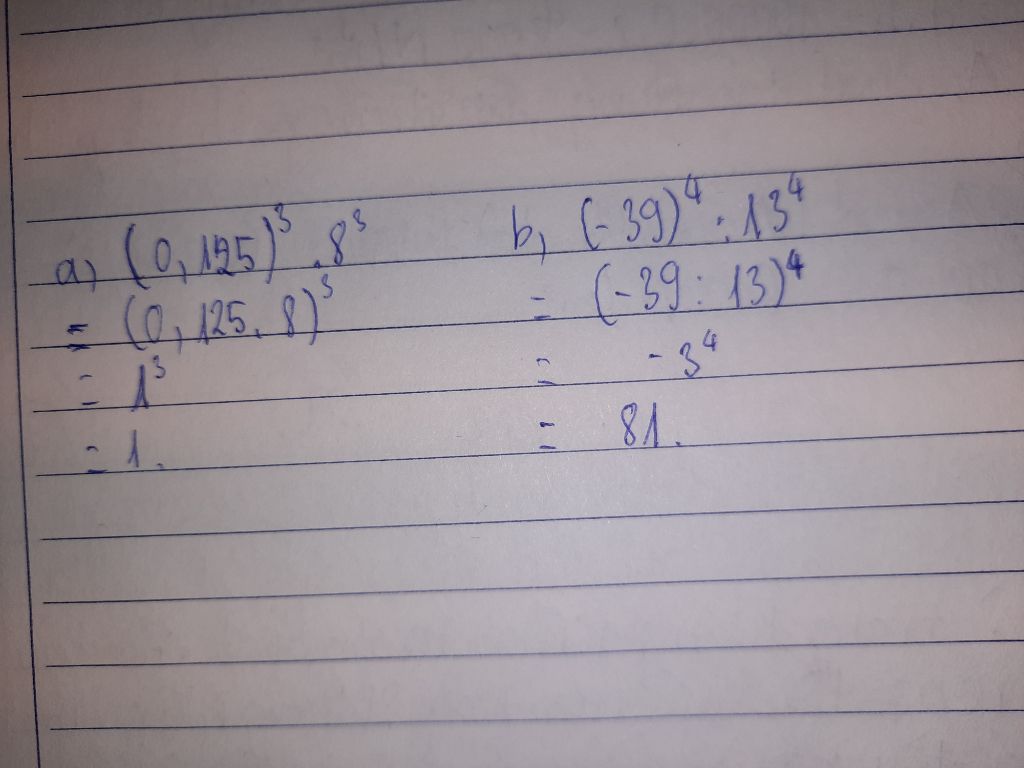 a, (0,125)³ . 8³
= (0,125 . 8)³
= 1³
= 1.
b, (-39)⁴ : 13⁴
= (-39 : 13)⁴
= -3⁴
= 81.